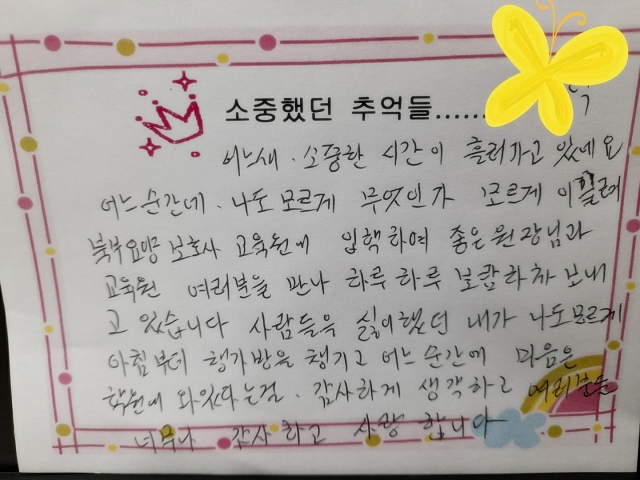 소중했던 추억들......
어느새. 소중한 시간이 흘러가고 있네요
어느순간에. 나도모르게 무엇인가 모르게 이끌려
북부요양보호사 교육원에 입학하여 좋은원장님과
교육원 여러분을 만나 하루하루 보람차차 보내
고 있습니다 사람들을 싫어했던 내가 나도모르게
아침부터 책가방을 챙기고 어느순간에 마음은
학원에 와있다는걸. 감사하게 생각하고 여러분들
너무나 감사하고 사랑합니다